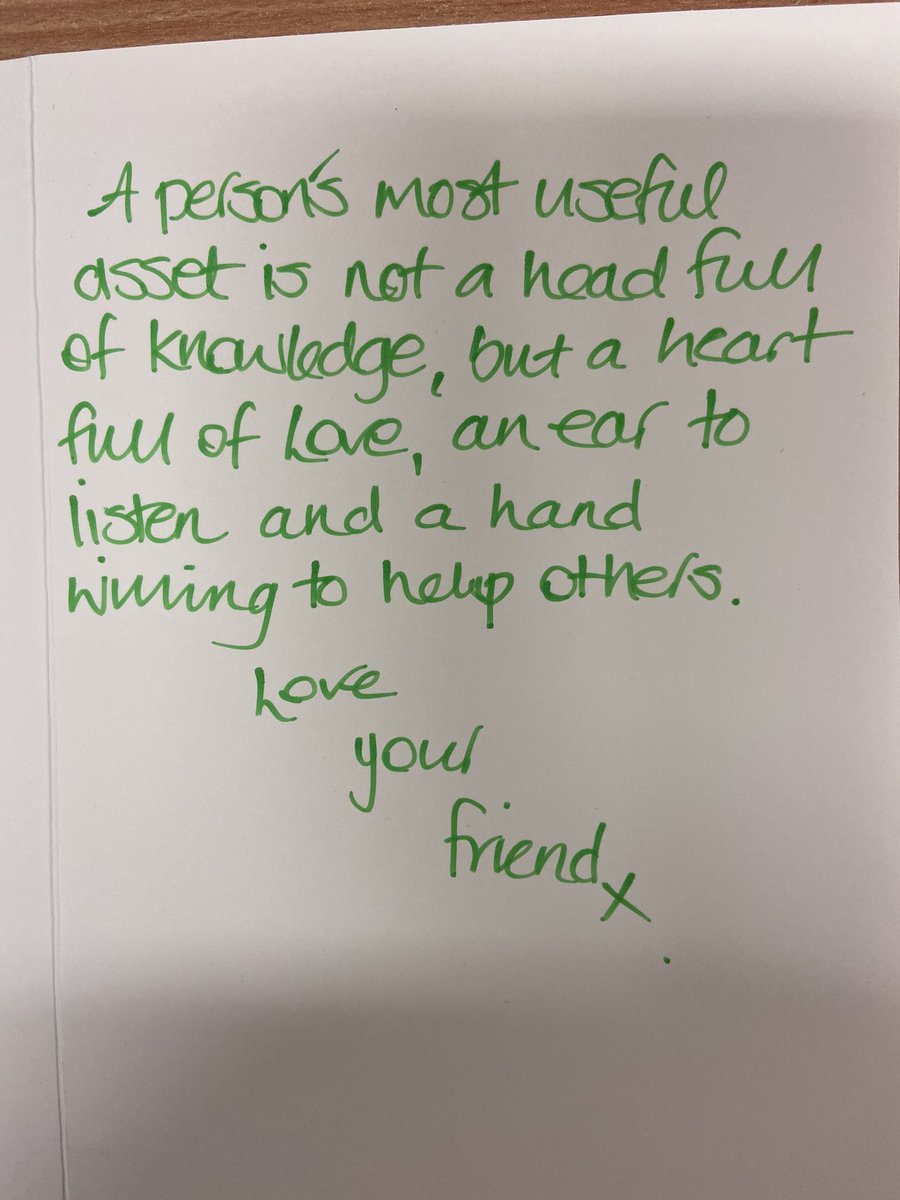 A person's most useful
asset is not a head full
of knowledge, but a heart
full of Love, an ear to
listen and a hand
willing to help others.
Love
your
friend x
.